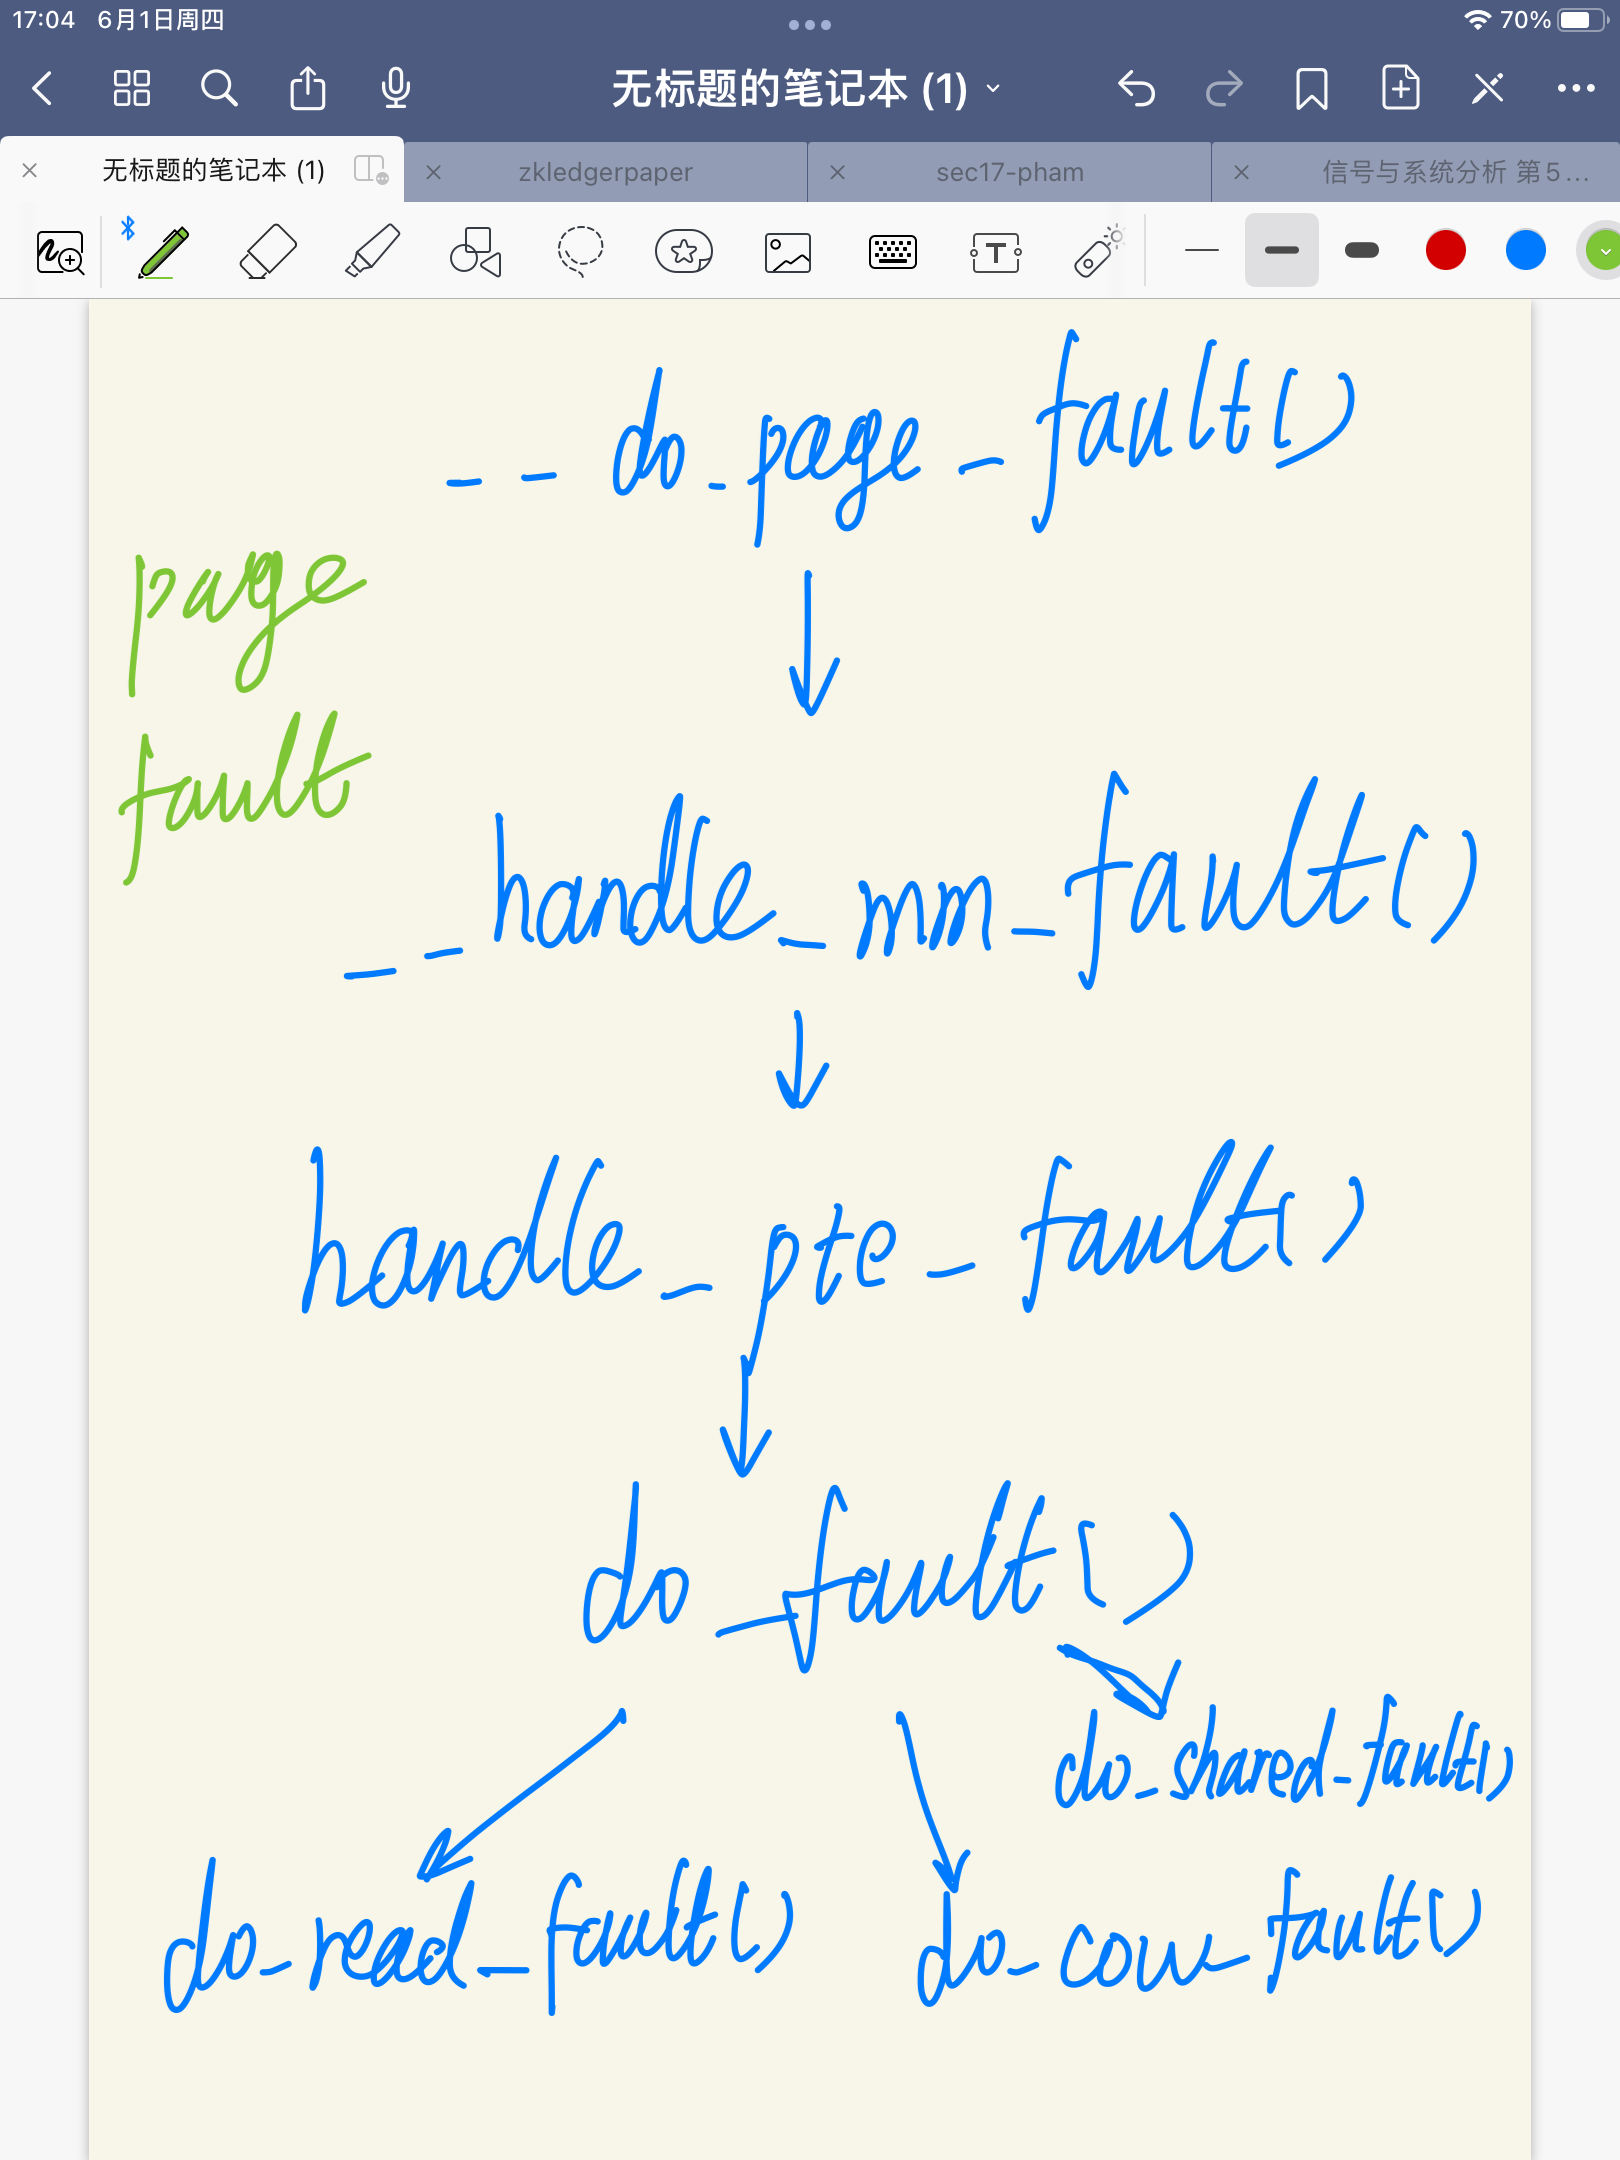 17:04 6月1日周四
70%
无标题的笔记本 (1)
无标题的笔记本 (1)
zkledgerpaper
sec17-pham
信号与系统分析 第5...
T
__do_page_fault()
page
fault
__handle_mm_fault()
handle_pte_fault()
do_fault()
do_shared_fault()
do_read_fault()
do_cow_fault()